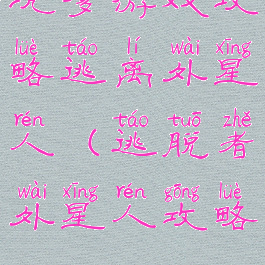 游戏攻
lüè táo lí wài xīng
略逃离外星
rén táo tuō zhě
人（逃脱者
wài xīng rén gōng lüè
外星人攻略